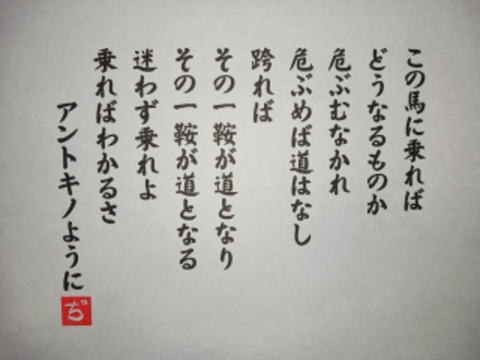 この馬に乗れば
どうなるものか
危ぶむなかれ
危ぶめば道はなし
跨れば
その一鞍が道となり
その一鞍が道となる
迷わず乗れよ
乗ればわかるさ
アントキノように
ぢ